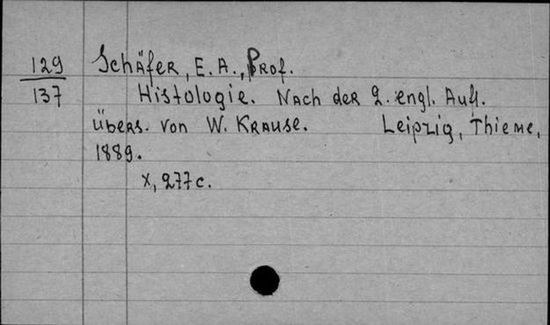 129 Schäfer, E. A., Prof.
137 Histologie. Nach der 2. engl. Aufl.
übers. von W. Krause. Leipzig, Thieme,
1889.
X, 277 c.